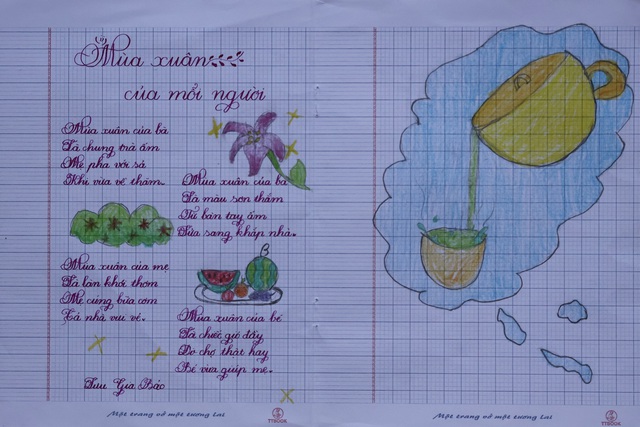 Mùa xuân
của mỗi người
Mùa xuân của bà
Là chung trà ấm
Mẹ pha với sả
Khi vừa về thăm.
Mùa xuân của ba
Là màu sơn thắm
Từ bàn tay ấm
Sửa sang khắp nhà.
Mùa xuân của mẹ
Là làn khói thơm
Mẹ cúng bữa cơm
Cả nhà vui vẻ.
Mùa xuân của bé
Là chiếc giỏ đầy
Đo chợ thật hay
Bé vừa giúp mẹ.
Lưu Gia Bảo
Một trang vở một tương lai
TTBOOK
Một trang vở một tương lai
TTBOOK